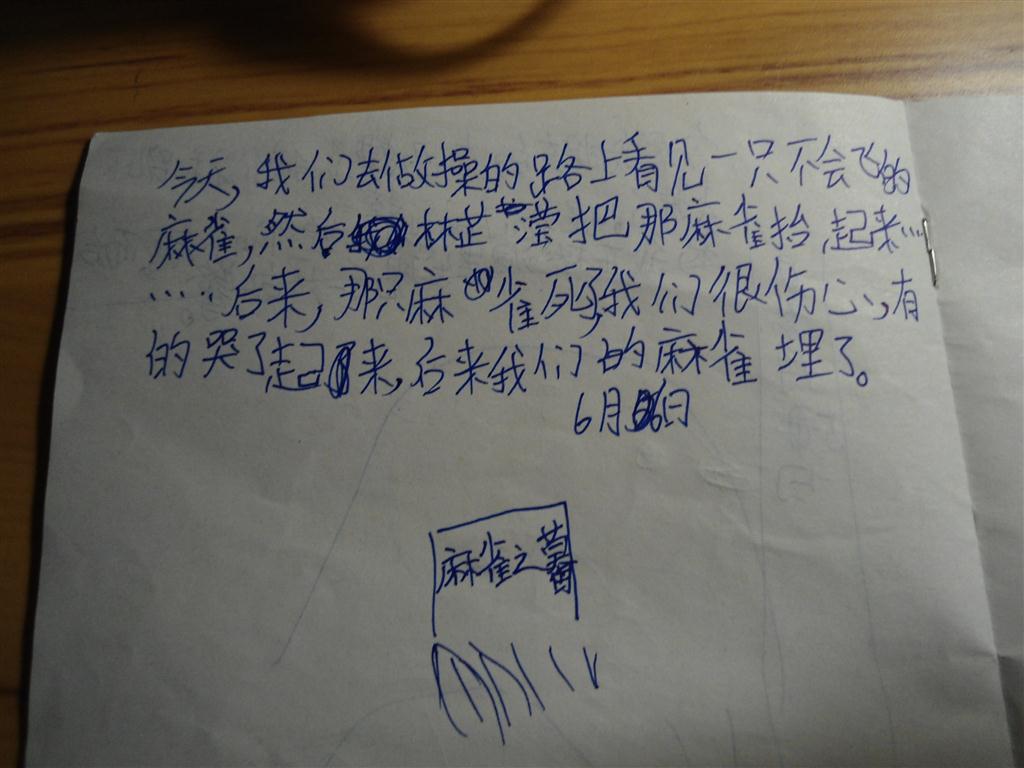 今天，我们去做操的路上看见一只不会飞的
麻雀，然后林芷滢把那麻雀抬起来…
……后来，那只麻雀死了，我们很伤心，有
的哭了起来，后来我们的麻雀埋了。
6月6日
麻雀之墓